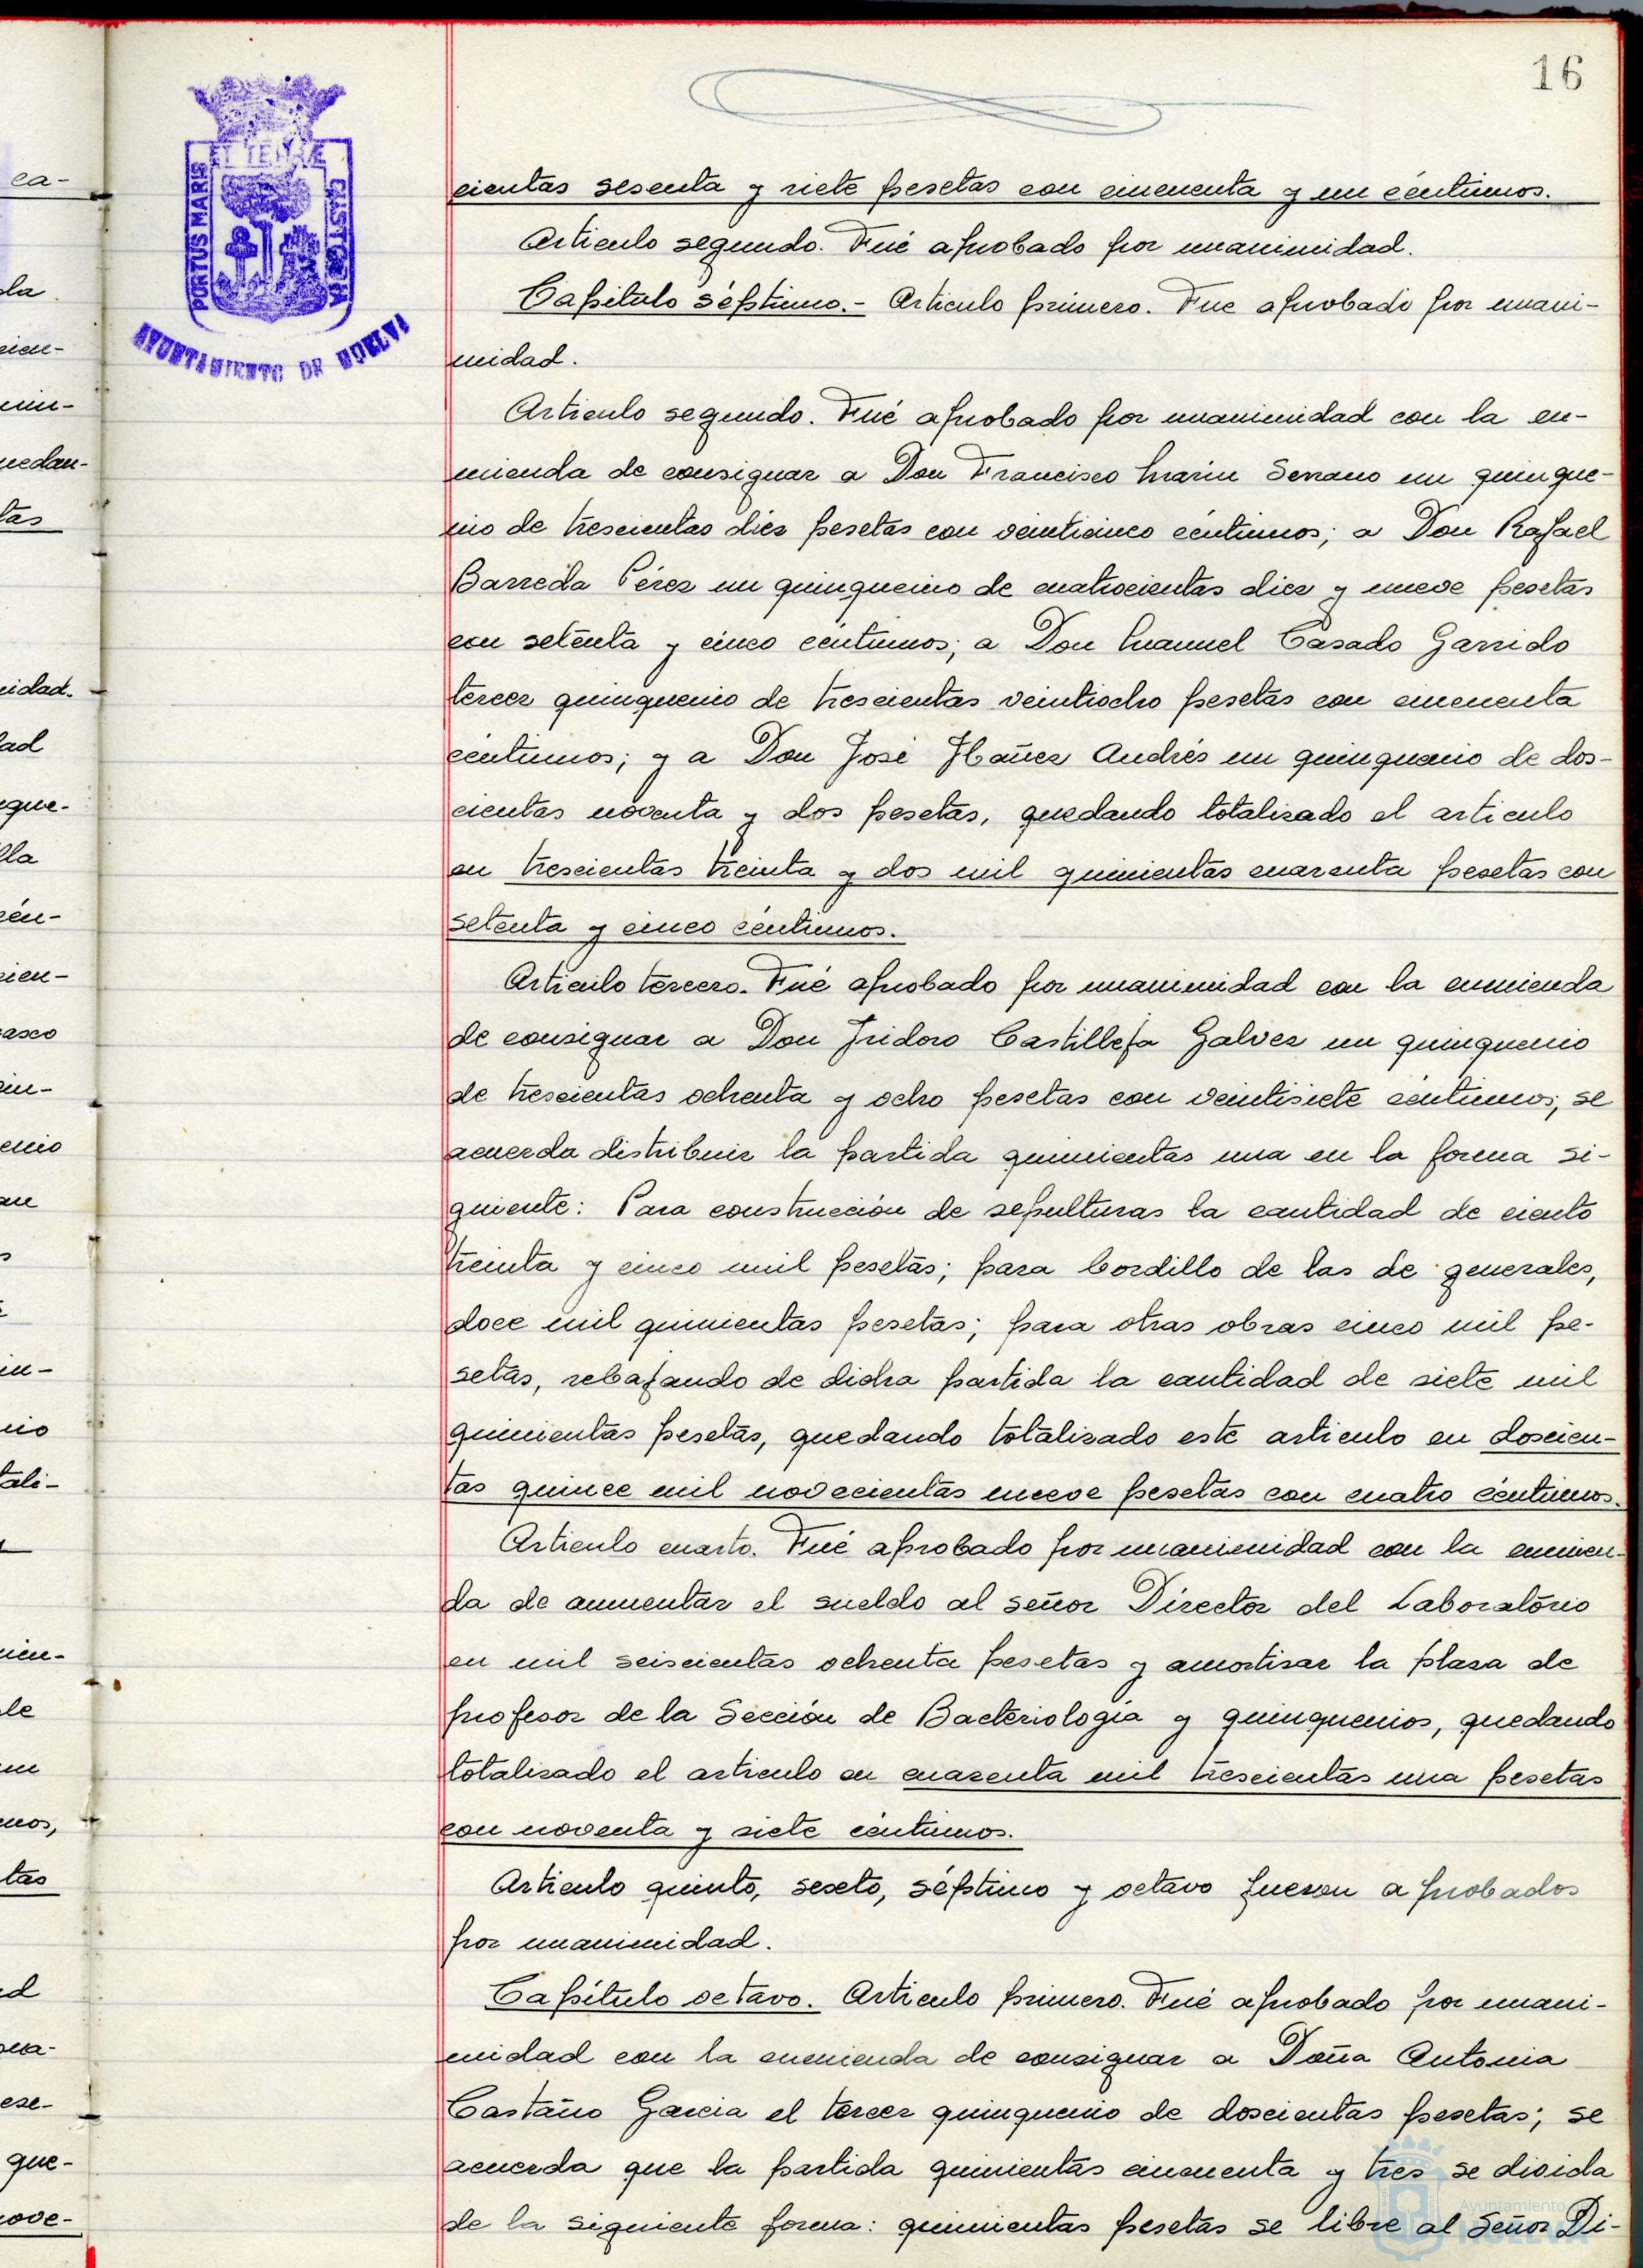 16
PORTUS MARIS
ET TERRÆ
CUSTODIA
AYUNTAMIENTO DE HUELVA
cientas sesenta y siete pesetas con cincuenta y un céntimos.
Articulo segundo. Fué aprobado por unanimidad.
Capitulo séptimo.- Articulo primero. Fue aprobado por unani-
midad.
Articulo segundo. Fué aprobado por unanimidad con la en-
mienda de consignar a Don Francisco Marin Serrano un quinque-
nio de trescientas diez pesetas con veinticinco céntimos; a Don Rafael
Barreda Pérez un quinquenio de cuatrocientas diez y nueve pesetas
con setenta y cinco céntimos; a Don Manuel Casado Garrido
tercer quinquenio de trescientas veintiocho pesetas con cincuenta
céntimos; y a Don José Ibañez Andrés un quinquenio de dos-
cientas noventa y dos pesetas, quedando totalizado el articulo
en trescientas treinta y dos mil quinientas cuarenta pesetas con
setenta y cinco céntimos.
Articulo tercero. Fué aprobado por unanimidad con la enmienda
de consignar a Don Isidoro Castilleja Galvez un quinquenio
de trescientas ochenta y ocho pesetas con veintisiete céntimos; se
acuerda distribuir la partida quinientas una en la forma si-
guiente: Para construcción de sepulturas la cantidad de ciento
treinta y cinco mil pesetas; para bordillo de las de generales,
doce mil quinientas pesetas; para otras obras cinco mil pe-
setas, rebajando de dicha partida la cantidad de siete mil
quinientas pesetas, quedando totalizado este articulo en doscien-
tas quince mil novecientas nueve pesetas con cuatro céntimos.
Articulo cuarto. Fué aprobado por unanimidad con la enmien-
da de aumentar el sueldo al señor Director del Laboratorio
en mil seiscientas ochenta pesetas y amortizar la plaza de
profesor de la Sección de Bacteriologia y quinquenios, quedando
totalizado el articulo en cuarenta mil trescientas una pesetas
con noventa y siete céntimos.
Articulo quinto, sexto, séptimo y octavo fueron aprobados
por unanimidad.
Capítulo octavo. Articulo primero. Fué aprobado por unani-
midad con la enmienda de consignar a Doña Antonia
Castaño Garcia el tercer quinquenio de doscientas pesetas; se
acuerda que la partida quinientas cincuenta y tres se divida
de la siguiente forma: quinientas pesetas se libre al Señor Di-
Ayuntamiento
HUELVA